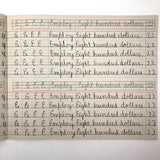 E E E E Employ Eight hundred dollars. 22
E E E E Employ Eight hundred dollars. 22
E E E E Employ Eight hundred dollars. 22
E E E E Employ Eight hundred dollars. 22
E E E E Employ Eight hundred dollars. 22
E E E E Employ Eight hundred dollars. 22
E E E E Employ Eight hundred dollars. 22
E E E E Employ Eight hundred dollars. 22